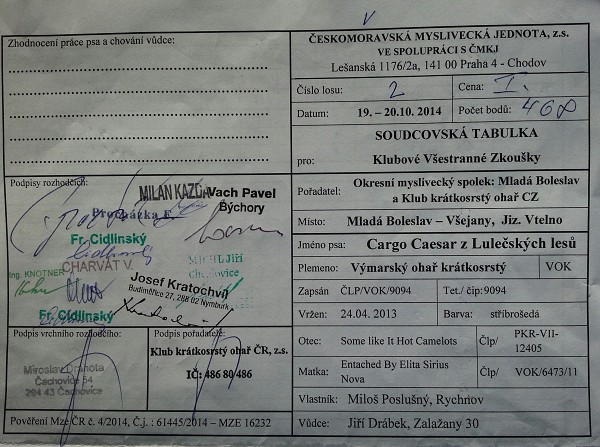 Zhodnocení práce psa a chování vůdce:
Podpisy rozhodčích:
MILAN KAZDA
Vach Pavel
Býchory
Procházka F.
Fr. Cidlinský
Ing. KNOTNER
CHARVÁT V.
Josef Kratochvíl
Budiměřice 27, 288 02 Nymburk
Fr. Cidlinský
Podpis vrchního rozhodčího:
Miroslav Drahota
Čachovice 54
294 43 Čachovice
Podpis pořadatele:
Klub krátkosrstý ohař ČR, z.s.
IČ: 486 80 486
Pověření Mze ČR č. 4/2014, Č.j. : 61445/2014 – MZE 16232
ČESKOMORAVSKÁ MYSLIVECKÁ JEDNOTA, z.s.
VE SPOLUPRÁCI S ČMKJ
Lešanská 1176/2a, 141 00 Praha 4 - Chodov
Číslo losu: 2 Cena: I.
Datum: 19. – 20.10. 2014 Počet bodů: 468
SOUDCOVSKÁ TABULKA
pro: Klubové Všestranné Zkoušky
Pořadatel: Okresní myslivecký spolek: Mladá Boleslav
a Klub krátkosrstý ohař CZ
Místo: Mladá Boleslav – Všejany, Jiz. Vtelno
Jméno psa: Cargo Caesar z Lulečských lesů
Plemeno: Výmarský ohař krátkosrstý VOK
Zapsán ČLP/VOK/9094 Tet./ čip:9094
Vržen: 24.04. 2013 Barva: stříbrošedá
Otec: Some like It Hot Camelots Člp/ PKR-VII-12405
Matka: Entached By Elita Sirius Nova Člp/ VOK/6473/11
Vlastník: Miloš Poslušný, Rychnov
Vůdce: Jiří Drábek, Zalažany 30